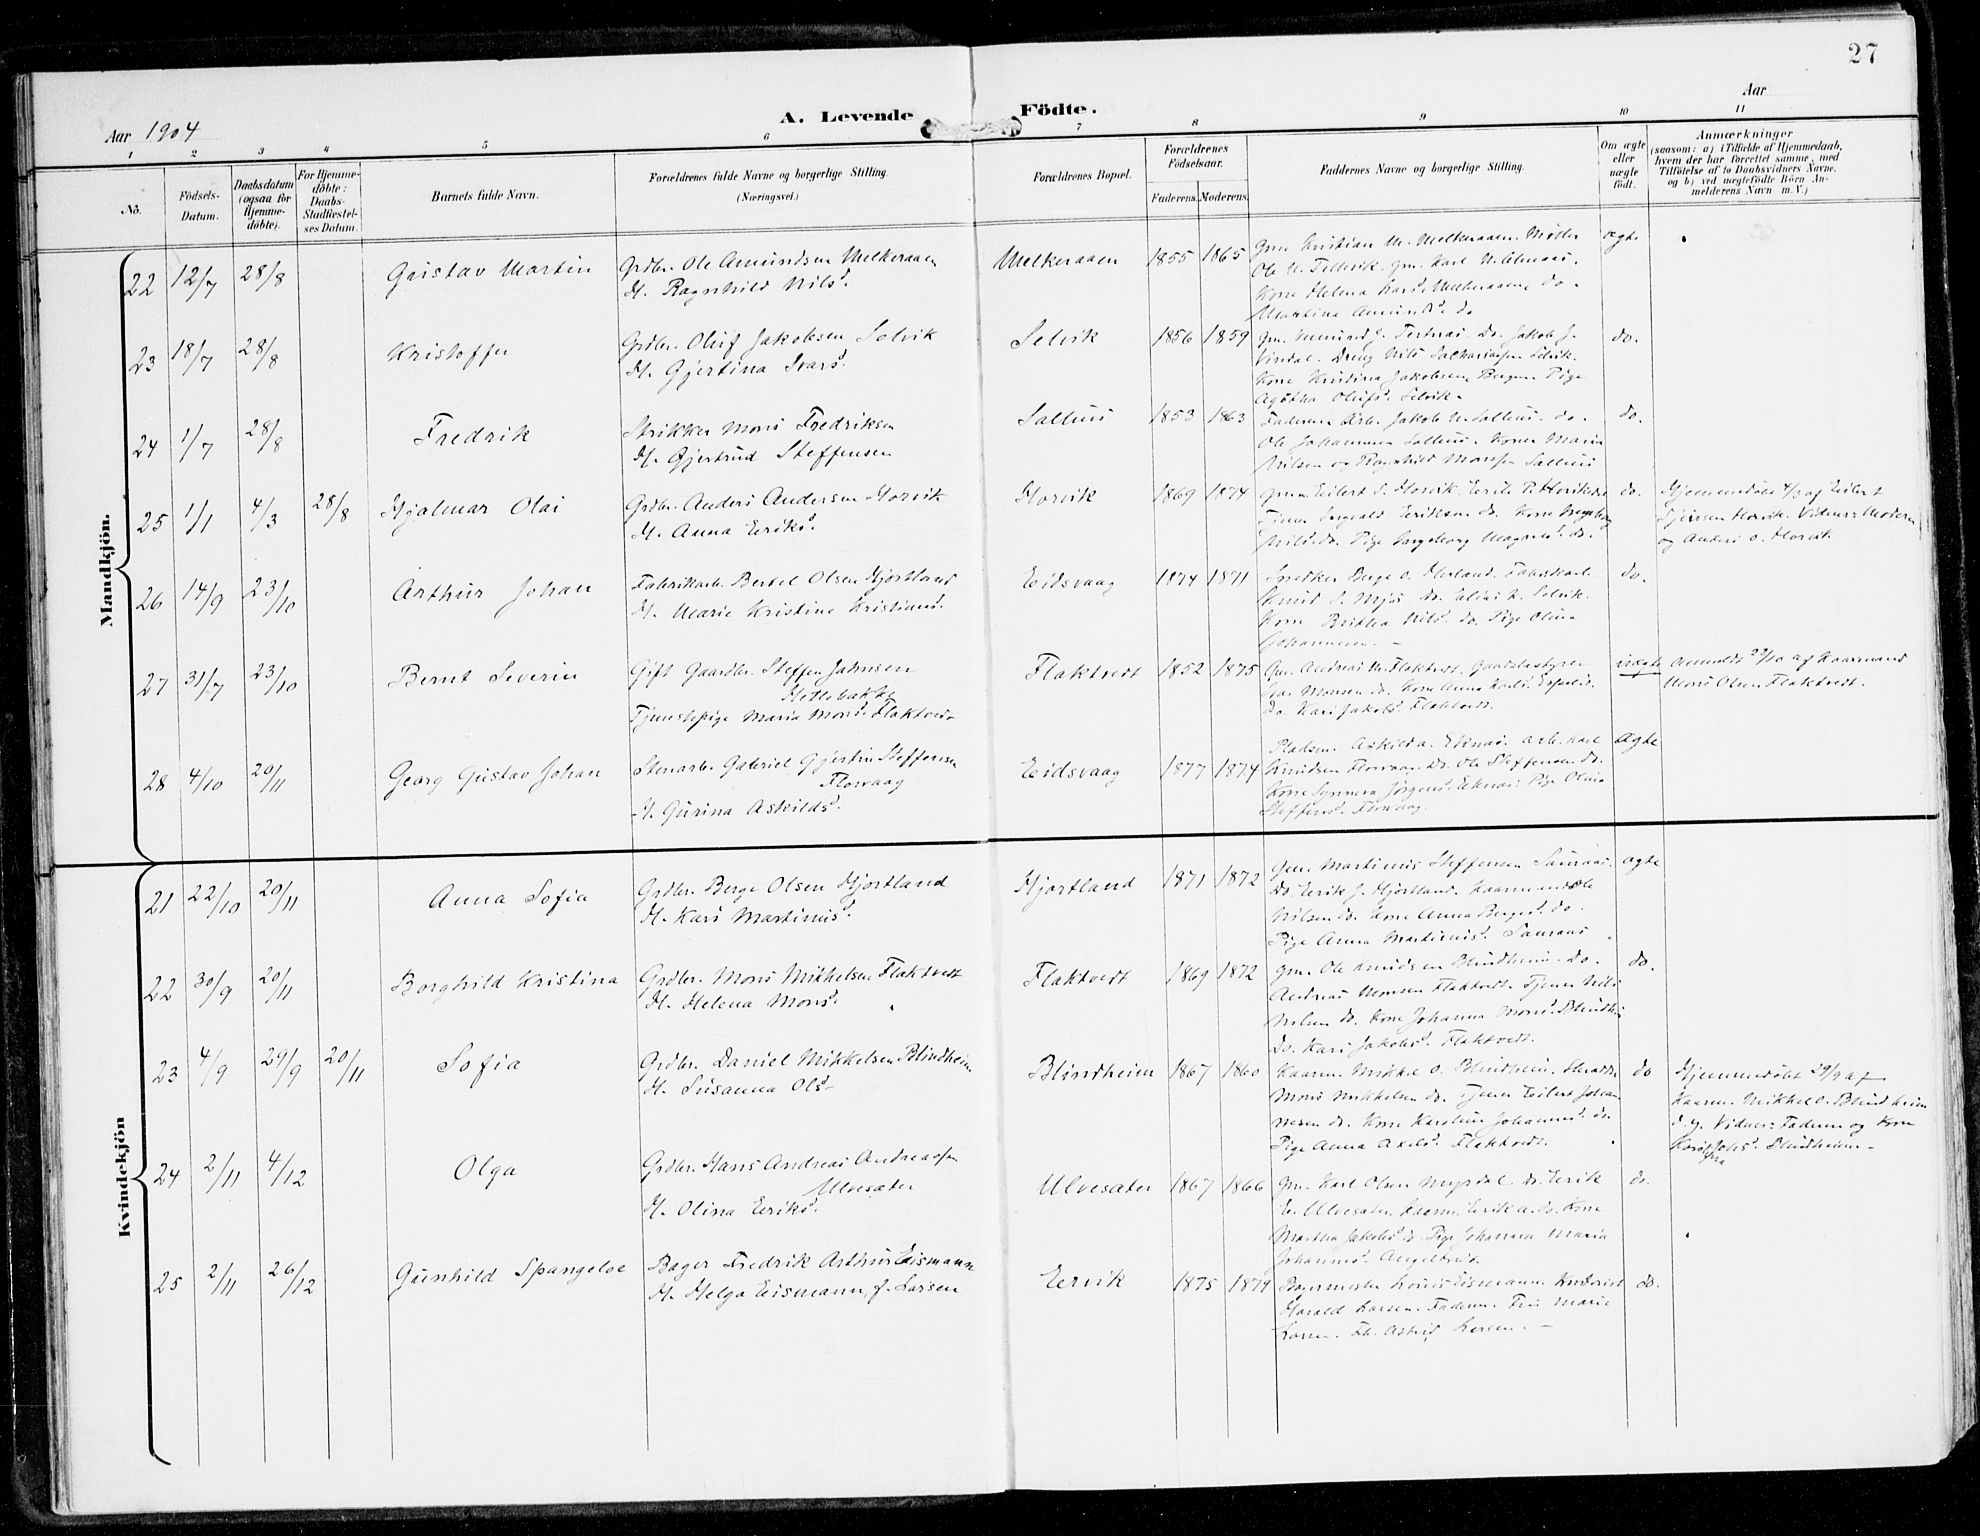 27
Aar 1904
A. Levende Födte.
Aar
1 2 3 4 5 6 7 8 9 10 11
No.
Födsels-Datum.
Daabsdatum (ogsaa for Hjemme-døbte).
For Hjemme-døbte: Daabs-Stadfæstel-ses Datum.
Barnets fulde Navn.
Forældrenes fulde Navne og borgerlige Stilling
(Næringsvei.)
Forældrenes Bopæl.
Forældrenes Födselsaar.
Faderens. Moderens.
Faddernes Navne og borgerlige Stilling.
Om ægte eller uægte födt.
Anmærkninger
(saasom: a) i Tilfælde af Hjemmedaab,
hvem der har forrettet samme, med
Tilföielse af to Daabsvidners Navne,
og b) ved uægtefödte Börn An-
melderens Navn m. V.)
Mandkjön.
22 12/7 28/8 Gustav Martin
Grdbr. Ole Amundsen Melkeraaen
H. Ragnhild Nilsd.
Melkeraaen 1855 1865
Gm. Kristian M. Melkeraaen. Møller
Ole N. Tellevik. Gm. Karl N.
Kone Helena Larsd. Melkeraaen, do.
Martina Amundsd. do
ægte
23 18/7 28/8 Kristoffer
Grdbr. Oluf Jakobsen Selvik
H. Gjertina Ivarsd.
Selvik 1856 1859
Gm. Amund J. Tertnæs. Do. Jakob J.
Dreng Nils Zakariassen Selvik.
Kone Kristina Jakobsen, Bergen. Pige
Agatha Olufsd. Selvik.
do.
24 1/7 28/8 Fredrik
Strikker Mons Fredriksen
H. Gjertrud Steffensen
Salhus 1853 1863
Faderen. Arb. Jakob N. Salhus. do.
Ole Johannesen Salhus. Koner Maria
Nilsen og Ragnhild Monssen Salhus
do.
25 1/1 4/3 28/8 Hjalmar Olai
Grdbr. Anders Andersen Horvik
H. Anna Eriksd.
Horvik 1869 1874
Eilert S. Horvik. Erik P.
Tjener Eriksen do. Kone Ingeborg
Nilsd. do. Pige Ingeborg Magnesd. do.
do.
Hjemmedøbt 4/3 af Eilert
Horvik. Vidner: Moderen
og Anders O. Horvik
26 14/9 23/10 Arthur Johan
Fabrikarb. Bertel Olsen Hjortland
H. Marie Kristine Kristiansd.
Eidsvaag 1874 1871
Snedker Berge O. Herland. Fabrikarb.
Knud S. Mjøs do. Elias K. Selvik.
Kone Britha Nilsd. do. Pige Olina
Johannesen. —
do.
27 31/7 23/10 Bernt Severin
Gift Gaardbr. Steffen Jahnsen
Hettebakke
Tjenestepige Maria Monsd. Flaktvedt
Flaktvedt 1852 1875
Gm. Andreas M. Flaktvedt. Gaardbestyrer
Monsen do. Kone Anna Karlsd. Espelid.
Do. Kari Jakobsd. Flaktvedt.
uægte
Anmeldt 23/10 af Kaarmand
Mons Olsen Flaktvedt.
28 4/10 20/11 Georg Gustav Johan
Stenarb. Gabriel Gjertin Steffensen
Florvaag
H. Gurina Askildsd.
Eidsvaag 1877 1874
Pladsm. Askild A. Eknæs. Arb. Karl
Knudsen Florvaag. Do. Ole Steffensen do.
Kone Synneva Jørgensd. Eknæs. Pige Olina
Steffensd. Florvaag.
Ægte
Kvindekjön
21 22/10 20/11 Anna Sofia
Grdbr. Berge Olsen Hjortland
H. Kari Martinusd.
Hjortland 1871 1872
Gm. Martinus Steffensen Sauraas.
Do. Erik J. Hjortland. Kaarmand Ole
Nilsen do. Kone Anna Bergesd. do.
Pige Anna Martinusd. Sauraas
ægte
22 30/9 20/11 Borghild Kristina
Grdbr. Mons Mikkelsen Flaktvedt
H. Helena Monsd.
Flaktvedt 1869 1872
Gm. Ole Knudsen Blindheim. Do.
Andreas Monsen Flaktvedt. Tjener Nils
Nilsen do. Kone Johanna Monsd. Blindheim
Do. Kari Jakobsd. Flaktvedt.
do.
23 4/9 29/9 20/11 Sofia
Grdbr. Daniel Mikkelsen Blindheim
H. Susanna Olsd.
Blindheim 1867 1860
Kaarm. Mikkel O. Blindheim. Skrædder
Mons Mikkelsen do. Tjener Eilert Johan
nesen do. Kone Karoline Johannesd. do.
Pige Anna Axelsd. Flaktvedt.
do
Hjemmedøbt 29/9 af
Kaarm. Mikkel O. Blindheim
d.y. Vidner: Faderen og Kone
Blindheim.
24 2/11 4/12 Olga
Grdbr. Hans Andreas Andreassen
Ulvesæter
H. Olina Eriksd.
Ulvesæter 1867 1866
Gm. Karl Olsen Myrdal. do. Erik
E. Ulvesæter. Kaarm. Erik A. do. Kone
Martha Jakobsd. do. Pige Johanna Maria
Johannesd. Angeltveit.
do.
25 2/11 26/12 Gunhild Spangeloe
Bager Fredrik Arthur Eismann
H. Helga Eismann f. Larsen
Eervik 1875 1874
Bagermester Louis Eismann.
Harald Larsen. Faderen. Fru Marie
Larsen. Frk. Astrid Larsen. —
do.